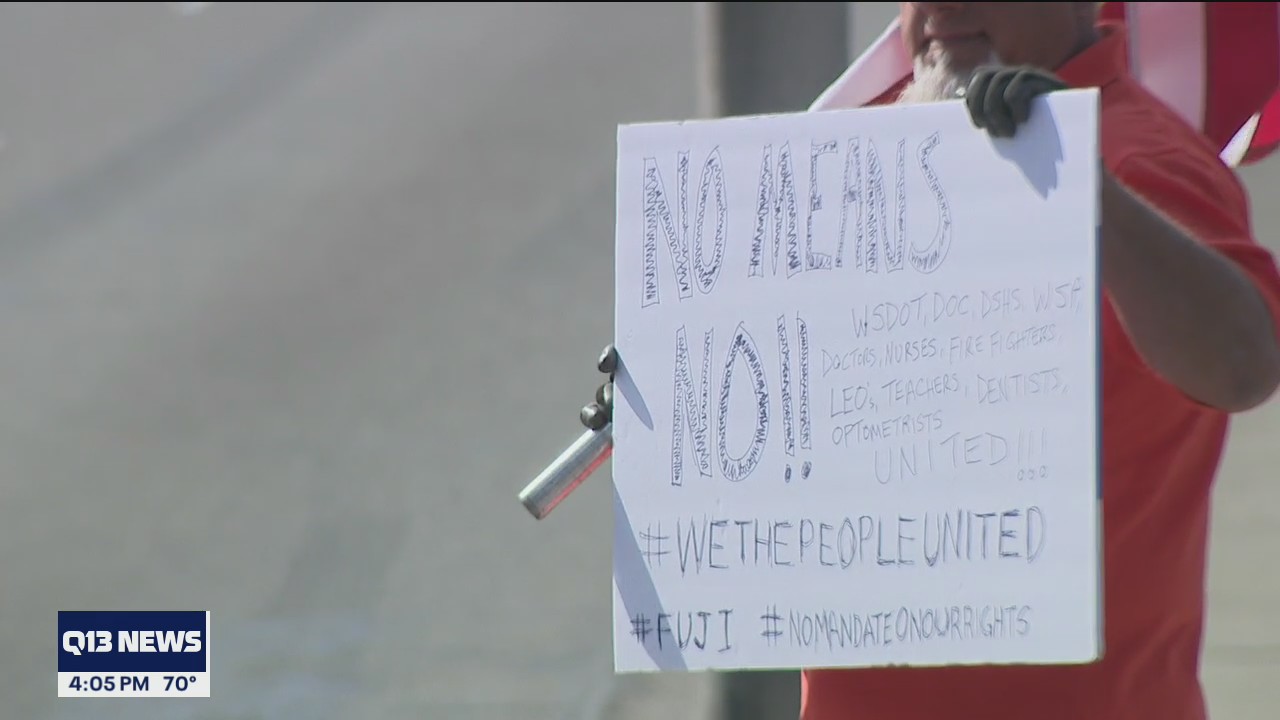 NO MEANS
NO!!
WSDOT, DOC, DSHS, WSP,
DOCTORS, NURSES, FIRE FIGHTERS,
LEO's, TEACHERS, DENTISTS,
OPTOMETRISTS
UNITED!!!
#WETHEPEOPLEUNITED
#FUJI #NOMANDATEONOURRIGHTS
Q13 NEWS
4:05 PM 70°